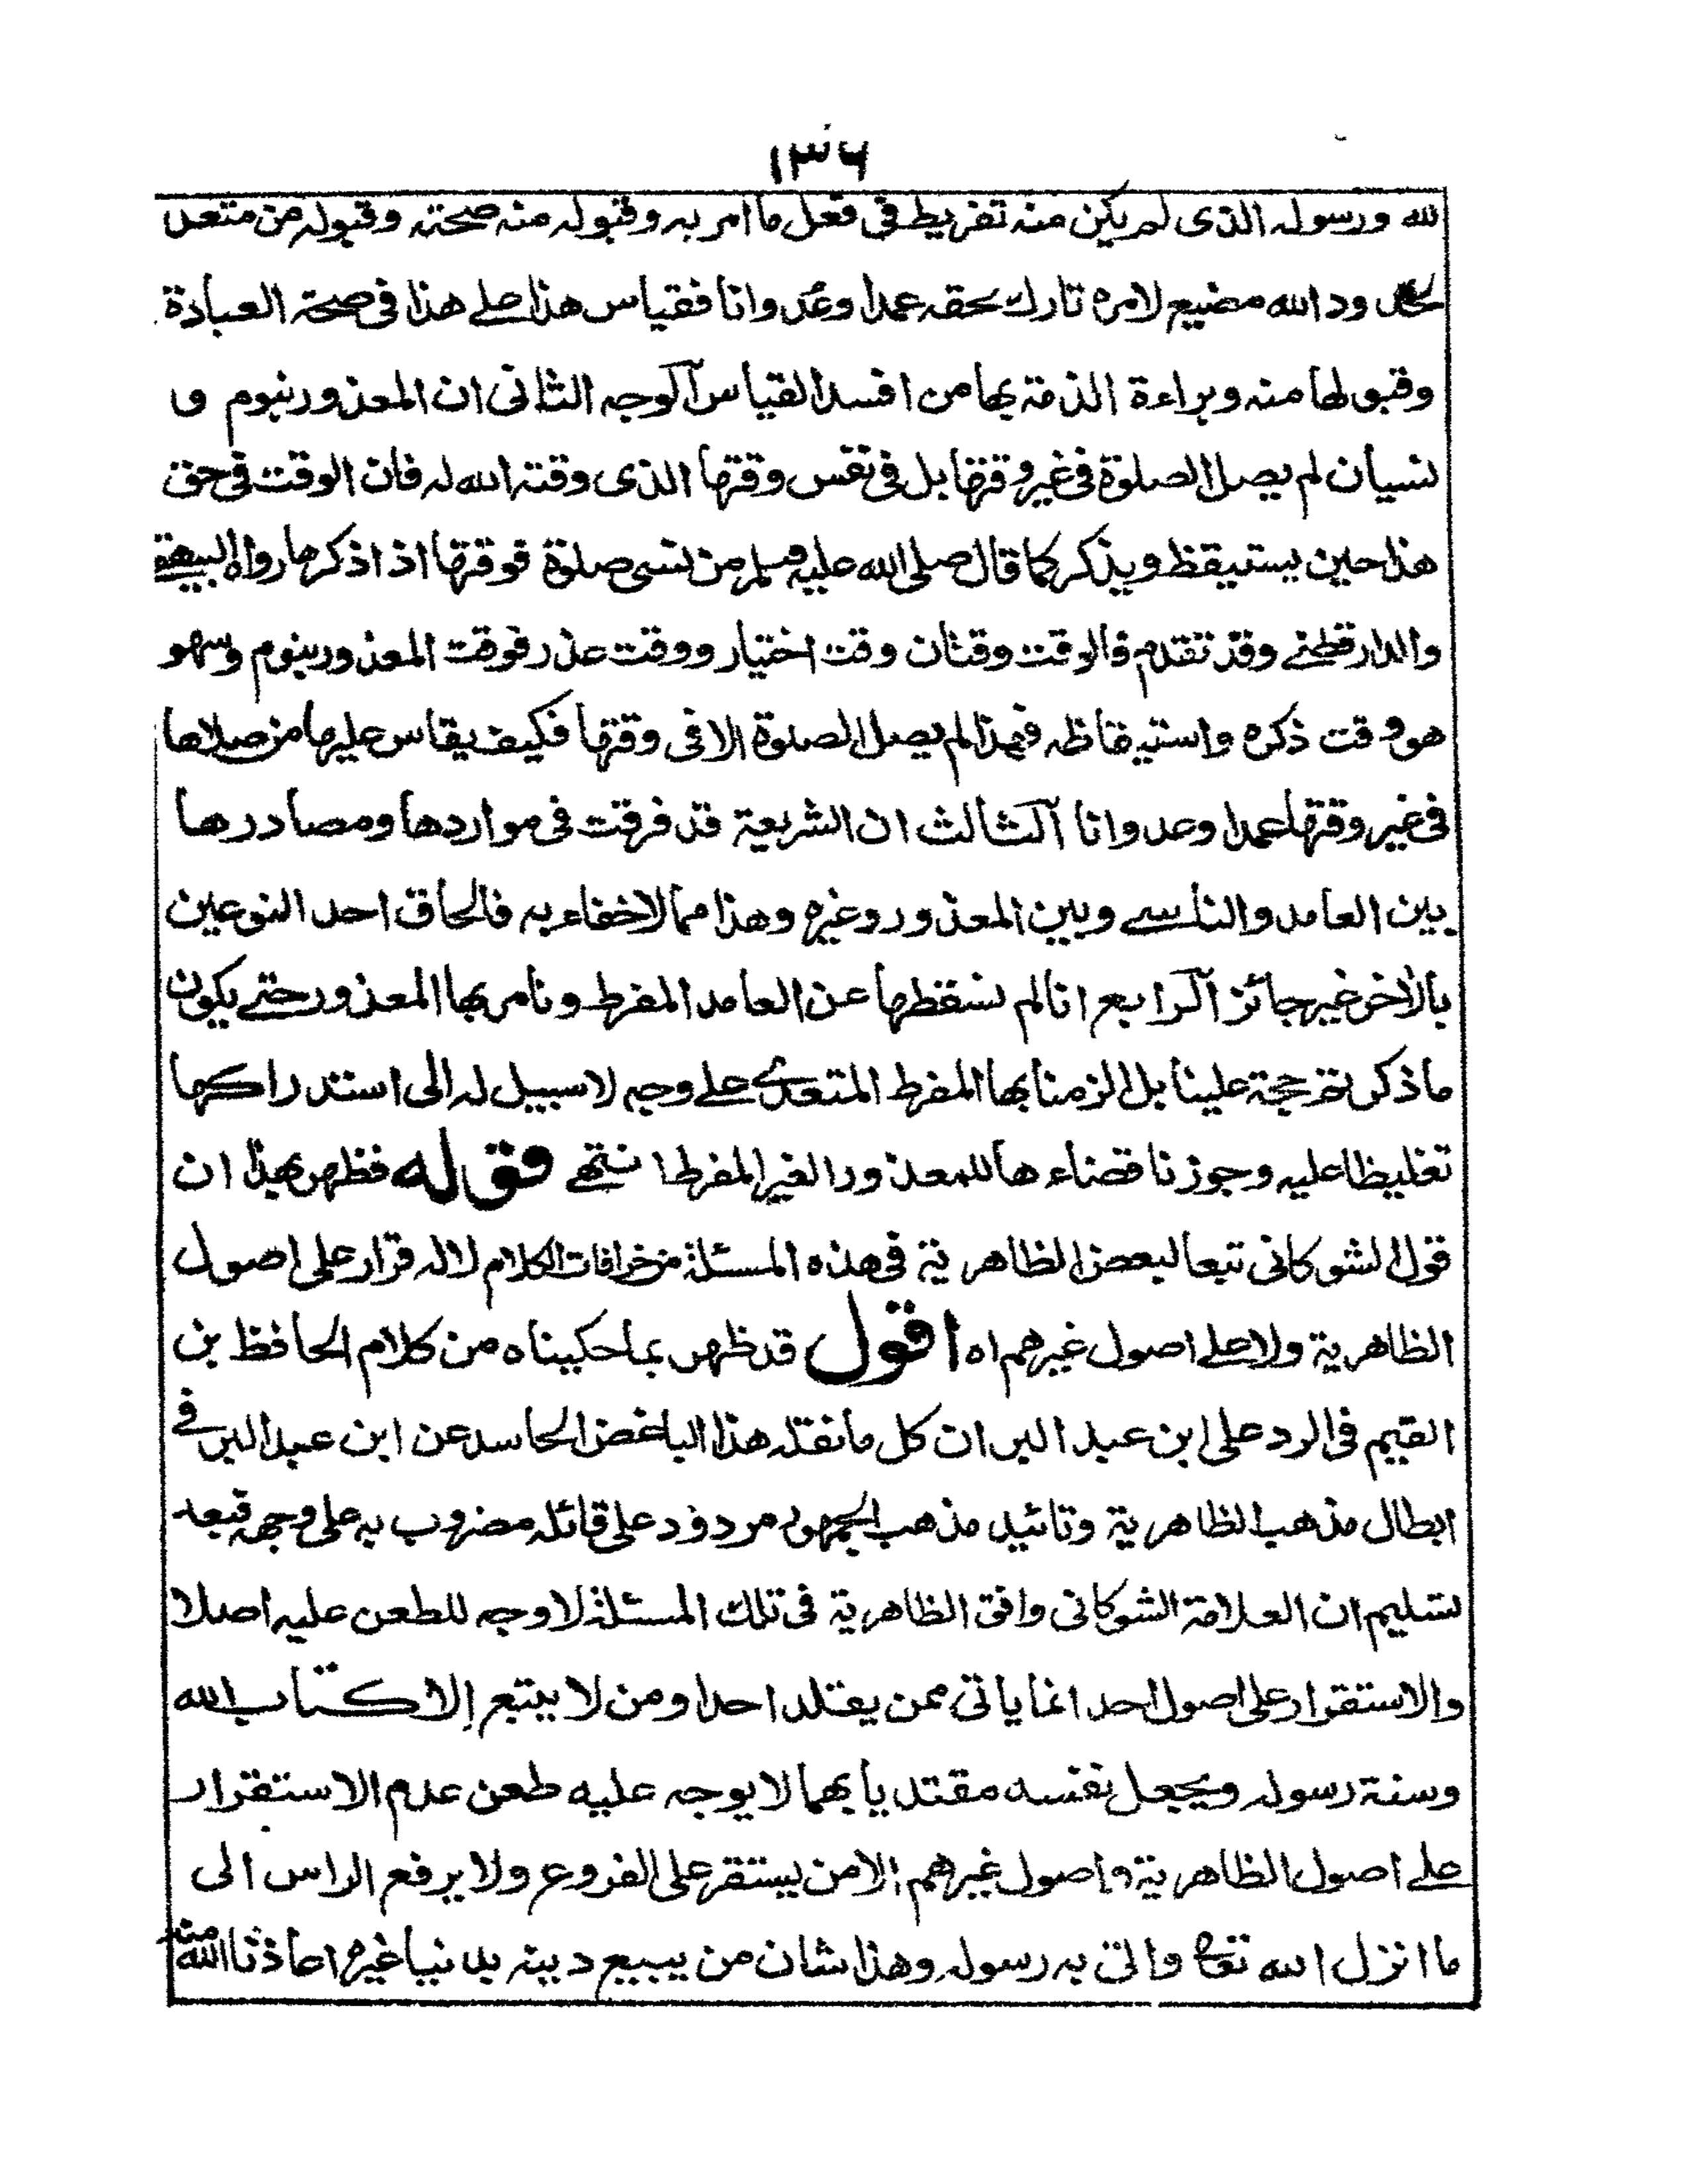 ١٣٦
لله ورسوله الذى لم يكن منه تفريط فى فعل ما امر به وقبوله منه صحته وقبوله من متعد
حدود الله مضيع لامره تارك بحقه عمدا وعدوانا فقياس هذا على هذا فى صحة العبادة
وقبولها منه وبراءة الذمة بها من افسد القياس آلوجه الثانى ان المعذور بنوم و
نسيان لم يصل الصلوة فى غير وقتها بل فى نفس وقتها الذى وقته الله له فان الوقت فى حق
هذا حين يستيقظ ويذكر كما قال صلى الله عليه وسلم من نسى صلوة فوقتها اذا ذكرها رواه البيهقى
والدارقطنے وقد تقدم فالوقت وقتان وقت اختيار ووقت عذر فوقت المعذور بنوم وسهو
هو وقت ذكره واستيقاظه فهذا لم يصل الصلوة الا فى وقتها فكيف يقاس عليها من صلاها
فى غير وقتها عمدا وعدوانا آلثالث ان الشريعة قد فرقت فى مواردها ومصادرها
بين العامد والناسے وبين المعذور وغيره وهذا مما لا خفاء به فالحاق احد النوعين
بالاخر غير جائز آلرابع انا لم نسقطها عن العامد المفرط ونامر بها المعذور حتے يكون
ما ذكرتم حجة علينا بل الزمنا بها المفرط المتعدے علے وجه لا سبيل له الى استدراكها
تغليظا عليه وجوزنا قضاءها للمعذور الغير المفرط انتهے قوله فظهر بهذا ان
قول الشوكانى تبعا لبعض الظاهرية فى هذه المسئلة من خرافات الكلام لا له قرار على اصول
الظاهرية ولا علے اصول غيرهم اه اقول قد ظهر بما حكيناه من كلام الحافظ بن
القيم فى الرد على ابن عبد البر ان كل ما نقله هذا الباغض الحاسد عن ابن عبد البر فے
ابطال مذهب الظاهرية وتائيد مذهب الجمهور مردود على قائله مضروب به على وجهه فبعد
تسليم ان العلامة الشوكانى وافق الظاهرية فى تلك المسئلة لا وجه للطعن عليه اصلا
والاستقرار على اصول احد انما ياتى ممن يقلد احدا ومن لا يتبع إلا كتاب الله
وسنة رسوله ويجعل نفسه مقتديا بهما لا يوجه عليه طعن عدم الاستقرار
علے اصول الظاهرية واصول غيرهم الا من يستقر على الفروع ولا يرفع الراس الى
ما انزل الله تعالى واتى به رسوله وهذا شان من يبيع دينه بدنيا غيره اعاذنا الله منه